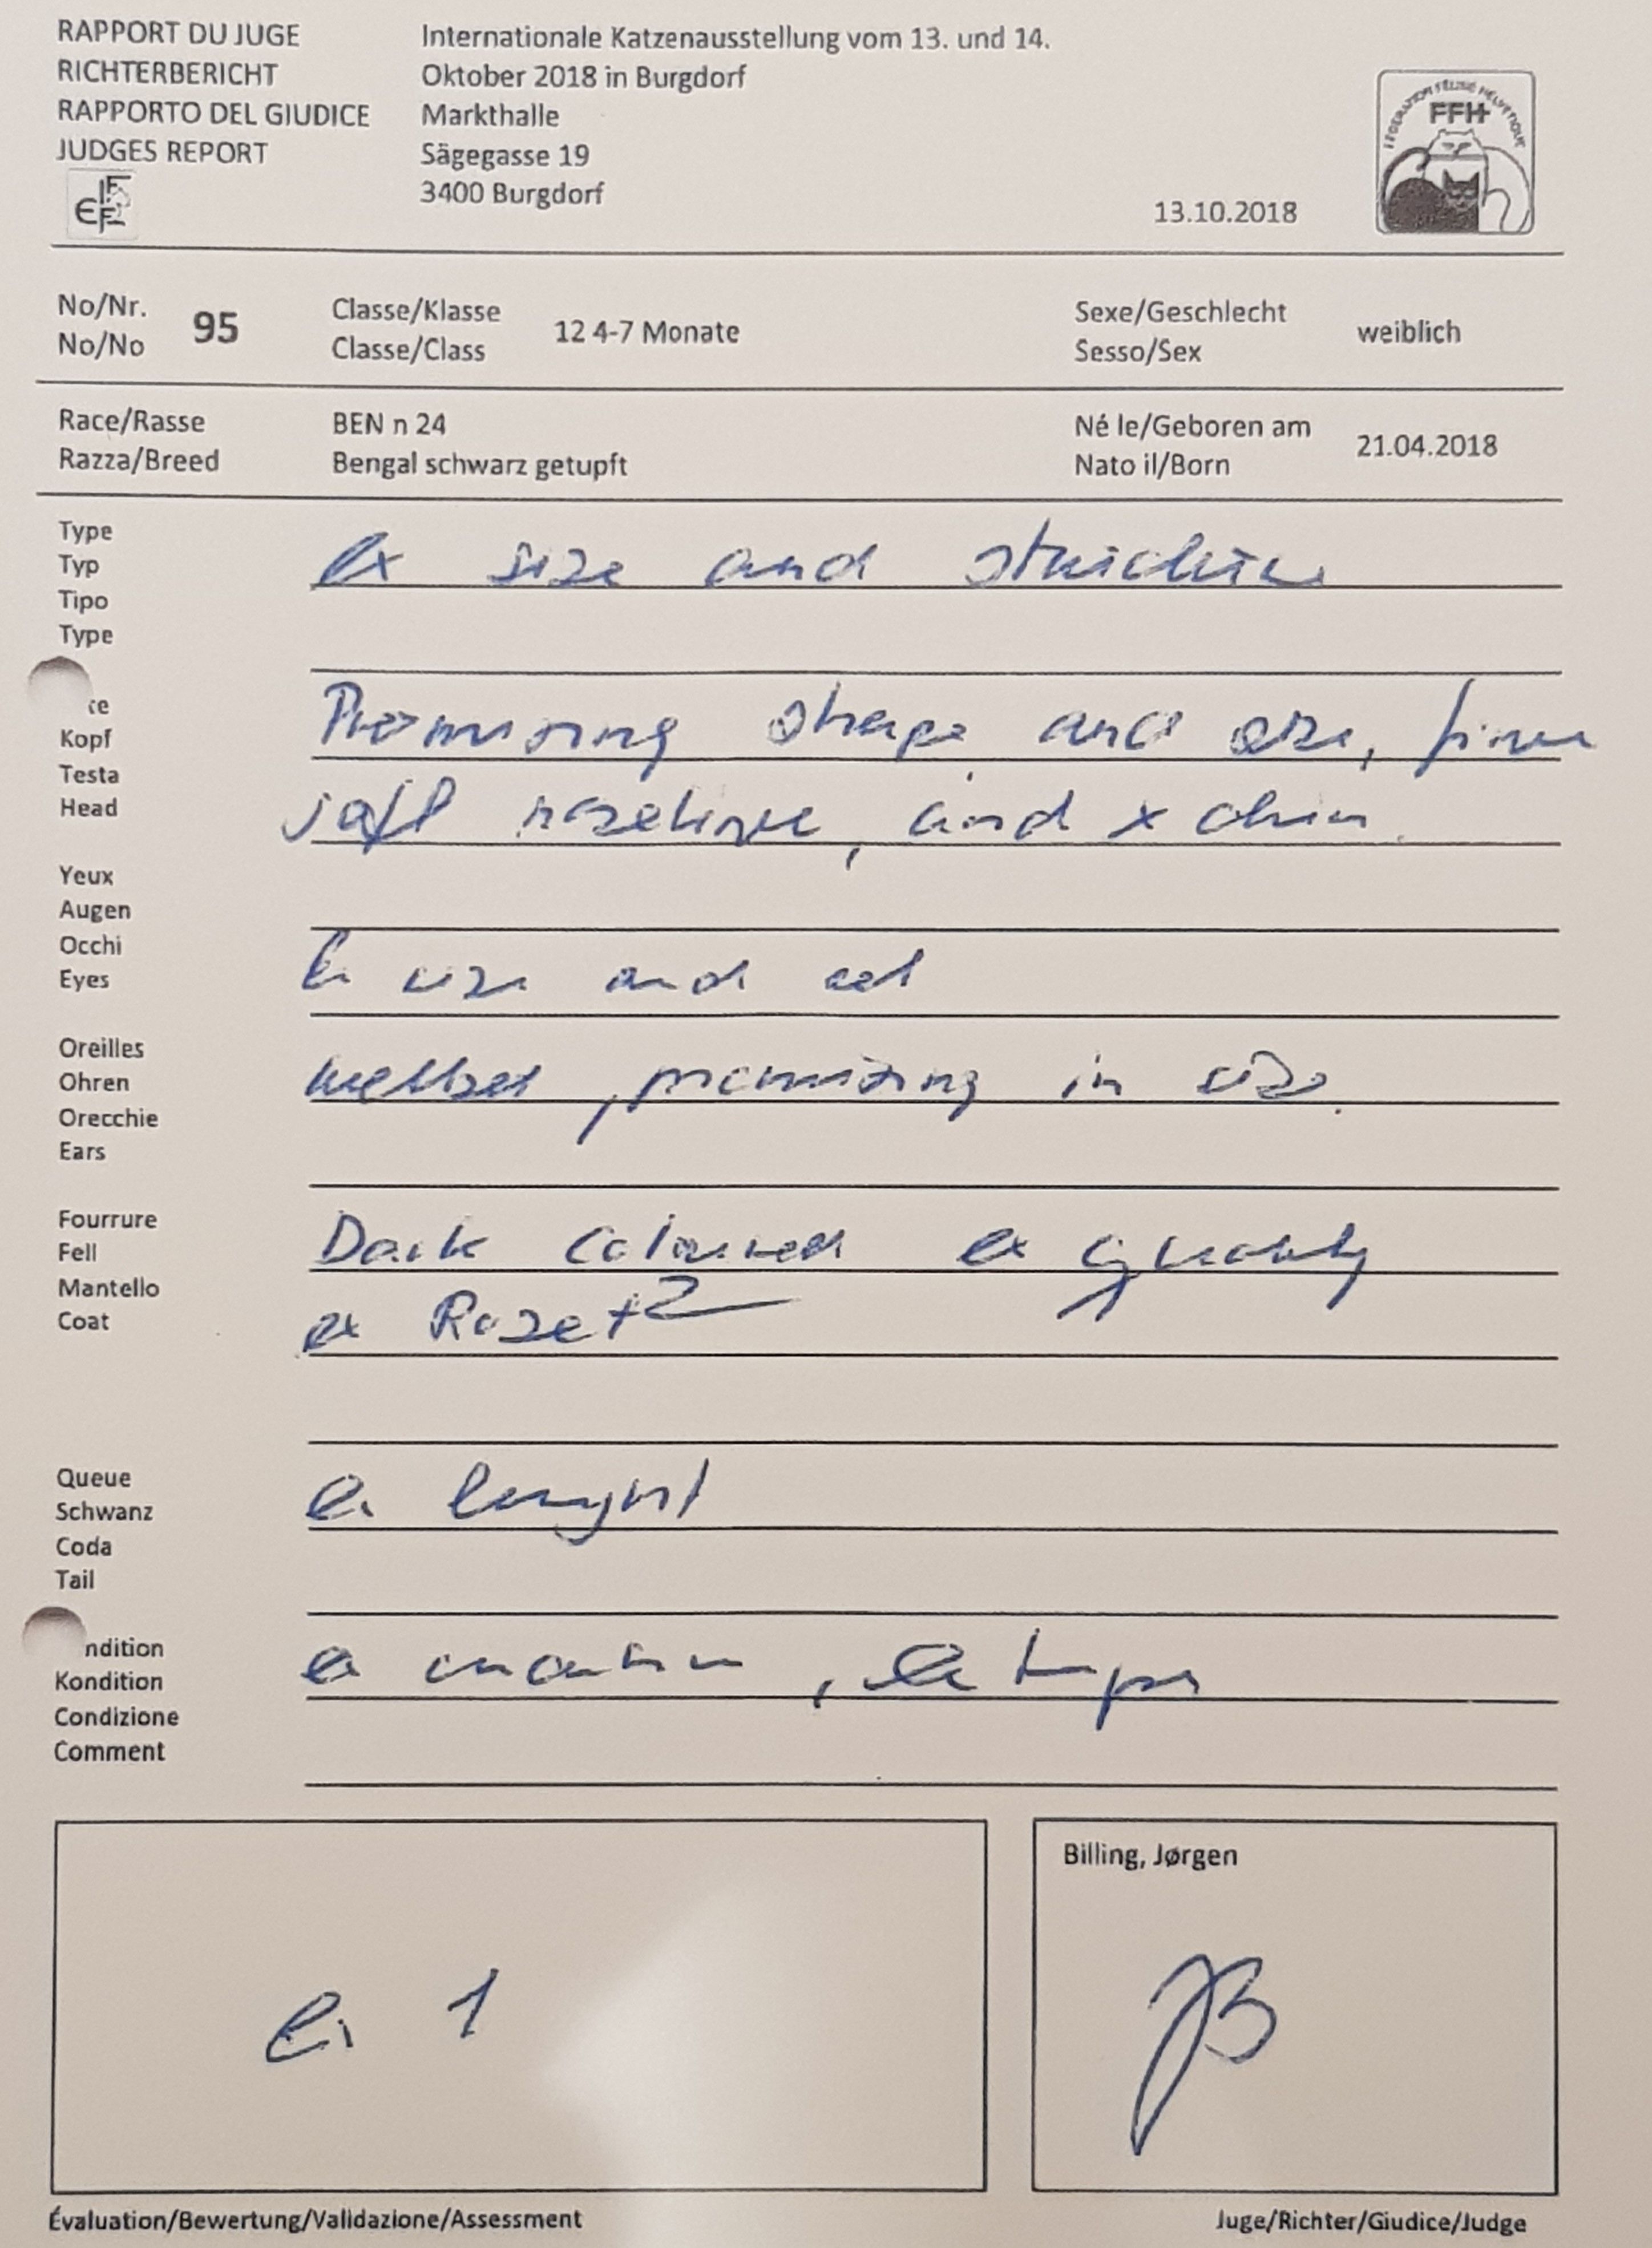 RAPPORT DU JUGE
RICHTERBERICHT
RAPPORTO DEL GIUDICE
JUDGES REPORT
Internationale Katzenausstellung vom 13. und 14.
Oktober 2018 in Burgdorf
Markthalle
Sägegasse 19
3400 Burgdorf
13.10.2018
FEDERATION FELINE HELVETIQUE
FFH
No/Nr.
No/No
95
Classe/Klasse
Classe/Class
12 4-7 Monate
Sexe/Geschlecht
Sesso/Sex
weiblich
Race/Rasse
Razza/Breed
BEN n 24
Bengal schwarz getupft
Né le/Geboren am
Nato il/Born
21.04.2018
Type
Typ
Tipo
Type
Ex size and
te
Kopf
Testa
Head
Promising shape and size,
and chin.
Yeux
Augen
Occhi
Eyes
size and
Oreilles
Ohren
Orecchie
Ears
wellset, promising in size.
Fourrure
Fell
Mantello
Coat
Dark coloured ex quality
ex Rozet
Queue
Schwanz
Coda
Tail
ndition
Kondition
Condizione
Comment
1
Billing, Jørgen
JB
Évaluation/Bewertung/Validazione/Assessment
Juge/Richter/Giudice/Judge